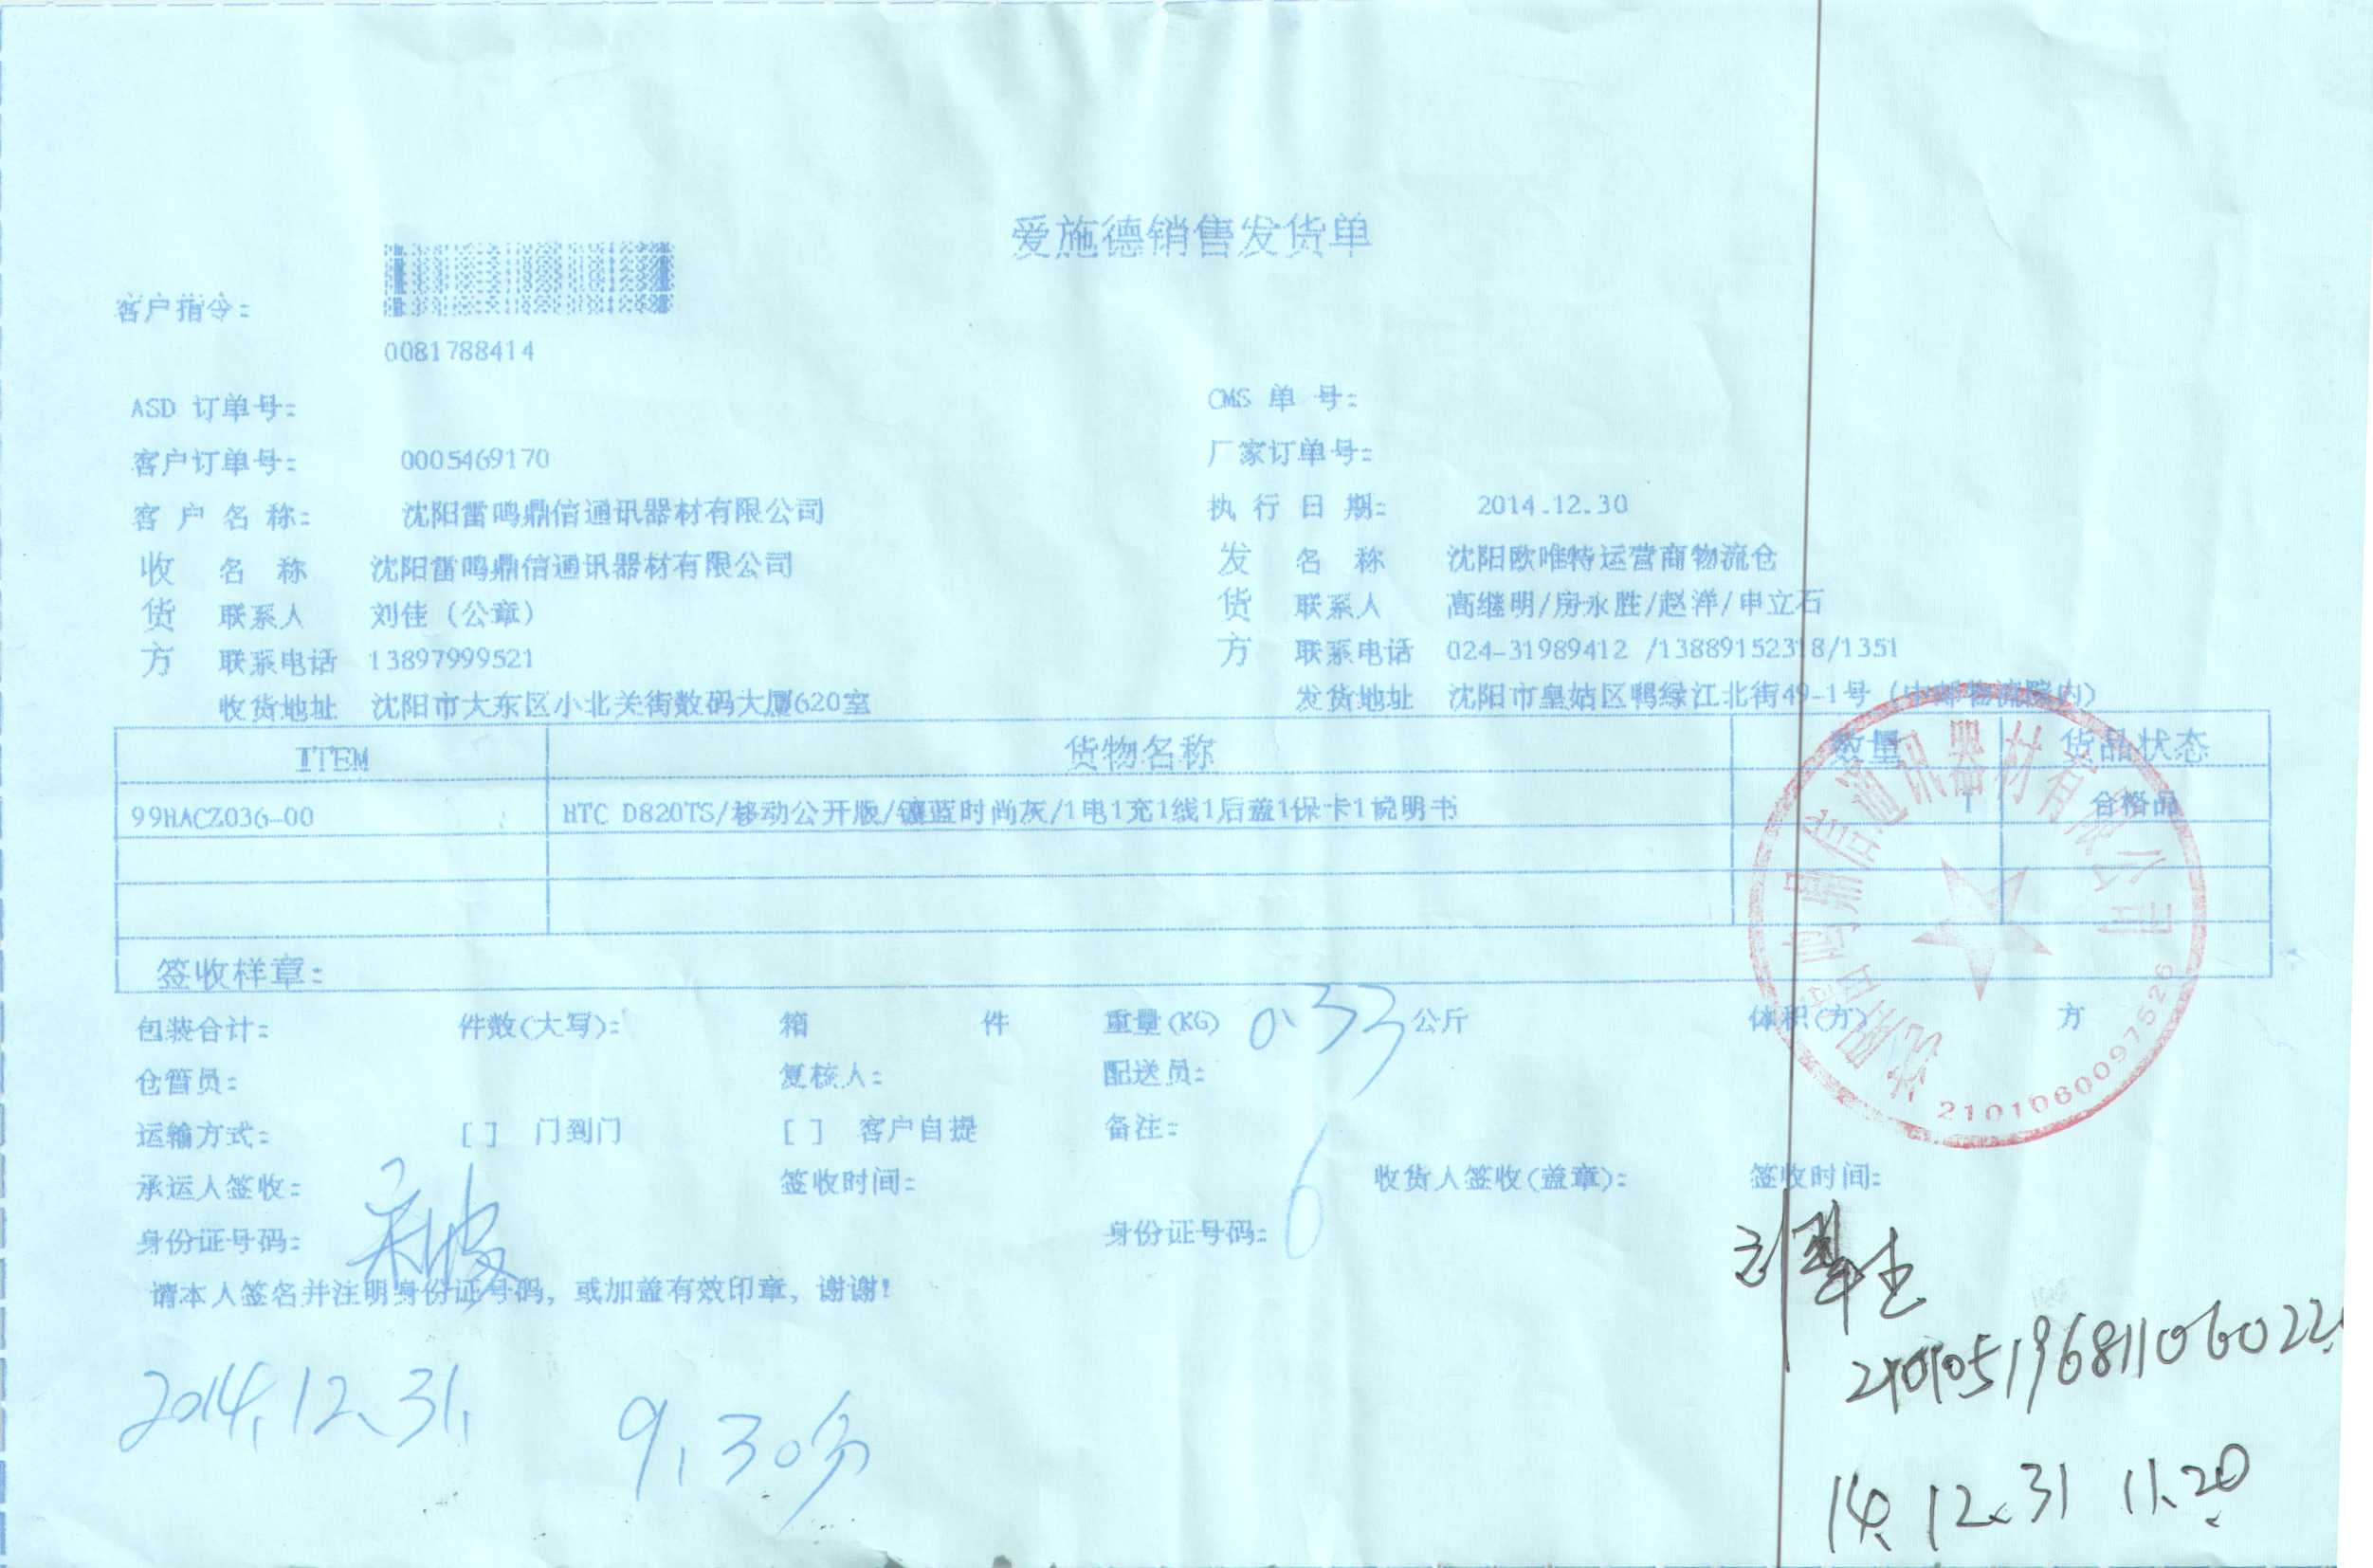 爱施德销售发货单
客户指令:
0081788414
ASD 订单号:
CMS 单 号:
客户订单号: 0005469170
厂家订单号:
客 户 名 称: 沈阳雷鸣鼎信通讯器材有限公司
执 行 日 期: 2014.12.30
收货方
名 称 沈阳雷鸣鼎信通讯器材有限公司
联系人 刘佳 (公章)
联系电话 13897999521
收货地址 沈阳市大东区小北关街数码大厦620室
发货方
名 称 沈阳欧唯特运营商物流仓
联系人 高继明/房永胜/赵洋/申立石
联系电话 024-31989412 /13889152318/1351
发货地址 沈阳市皇姑区鸭绿江北街49-1号 (中邮物流院内)
ITEM 货物名称 数量 货品状态
99HACZ036-00 HTC D820TS/移动公开版/镶蓝时尚灰/1电1充1线1后盖1保卡1说明书 1 合格品
签收样章:
包装合计: 件数(大写): 箱 件 重量(KG) 0.33 公斤 体积(方) 方
仓管员: 复核人: 配送员:
运输方式: [ ] 门到门 [ ] 客户自提 备注:
承运人签收: 签收时间: 收货人签收(盖章): 签收时间:
身份证号码: 身份证号码:
6
请本人签名并注明身份证号码, 或加盖有效印章, 谢谢!
2014.12.31. 9.30分
14.12.31 11.20
沈阳雷鸣鼎信通讯器材有限公司
2101060097526